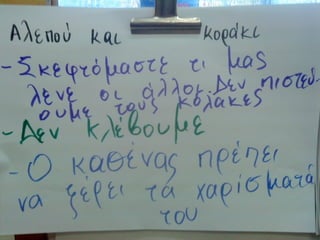 Αλεπού και κοράκι
- Σκεφτόμαστε τι μας
λενε οι άλλοι. Δεν πιστεύ-
ουμε τους κόλακες
- Δεν κλέβουμε
- Ο καθένας πρέπει
να ξέρει τα χαρίσματά
του